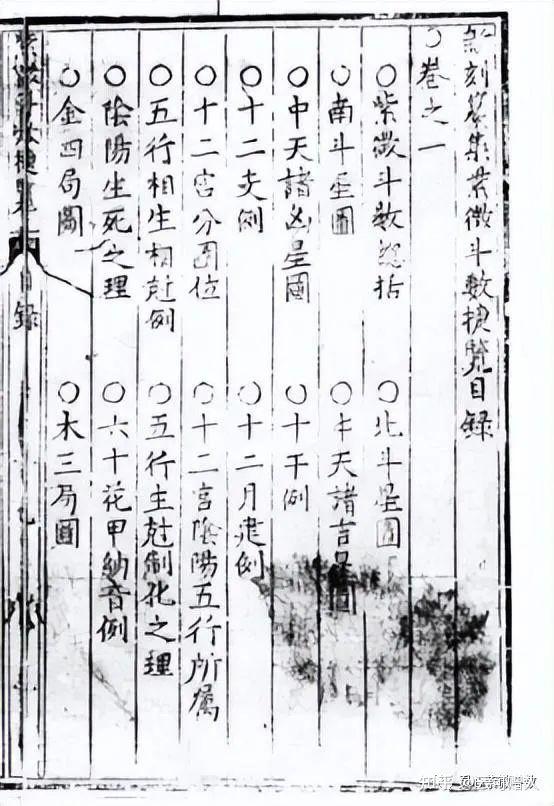 新刻纂集紫微斗數捷覽目錄
○卷之一
○紫微斗數總括 ○北斗星圖
○南斗星圖 ○中天諸吉星圖
○中天諸凶星圖 ○十干例
○十二支例 ○十二月建例
○十二宮分圖位 ○十二宮陰陽五行所屬
○五行相生相尅例 ○五行生尅制化之理
○陰陽生死之理 ○六十花甲納音例
○金四局圖 ○木三局圖
紫微斗數捷覽 目錄
知乎